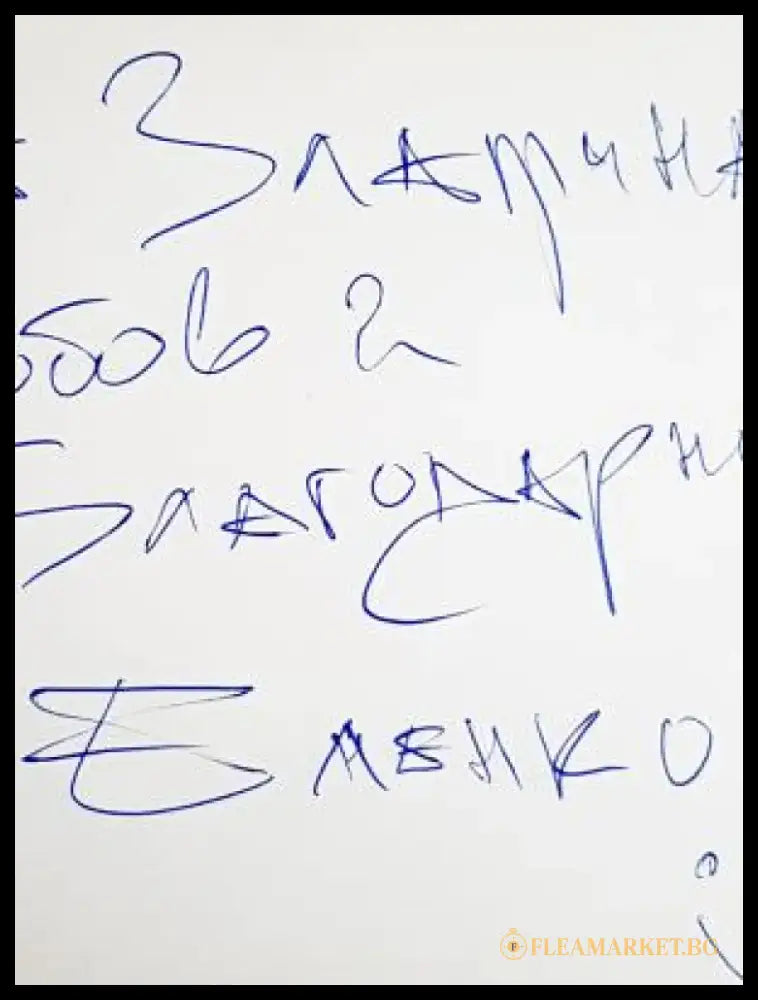 Златина
юбов и
Благодарн
Еленко
FLEAMARKET.BG